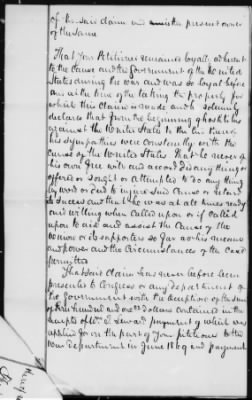 of the said claim and is the present owner
of the same
That Your Petitioner remained loyally adherent
to the cause and the Government of the United
States during the war and was so loyal before
and at the time of the taking the property for
which this claim is made and he solemnly
declares that from the beginning of hostilities
against the United States to the end thereof
his sympathies were constantly with the
cause of the United States That he never of
his own free will and accord did any thing or
offered or sought or attempted to do any thing
by word or deed to injure said Cause or retard
its success and that he was at all times ready
and willing when called upon or if called
upon to aid and assist the Cause of the
Union or its supporters so far as his means
and power and the Circumstances of the case
permitted
That said Claim has never before been
presented to Congress or any department of
the Government with the exception of the sum
of hundred and dollars contained in the
receipts of J Seward payment of which was
applied for on the part of your petitioner to the
War department in June 1869 and payment